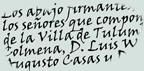 Los abajo firmantes
los señores que compon
de la Villa de Tulum
Colmena, D. Luis W
Augusto Casas u